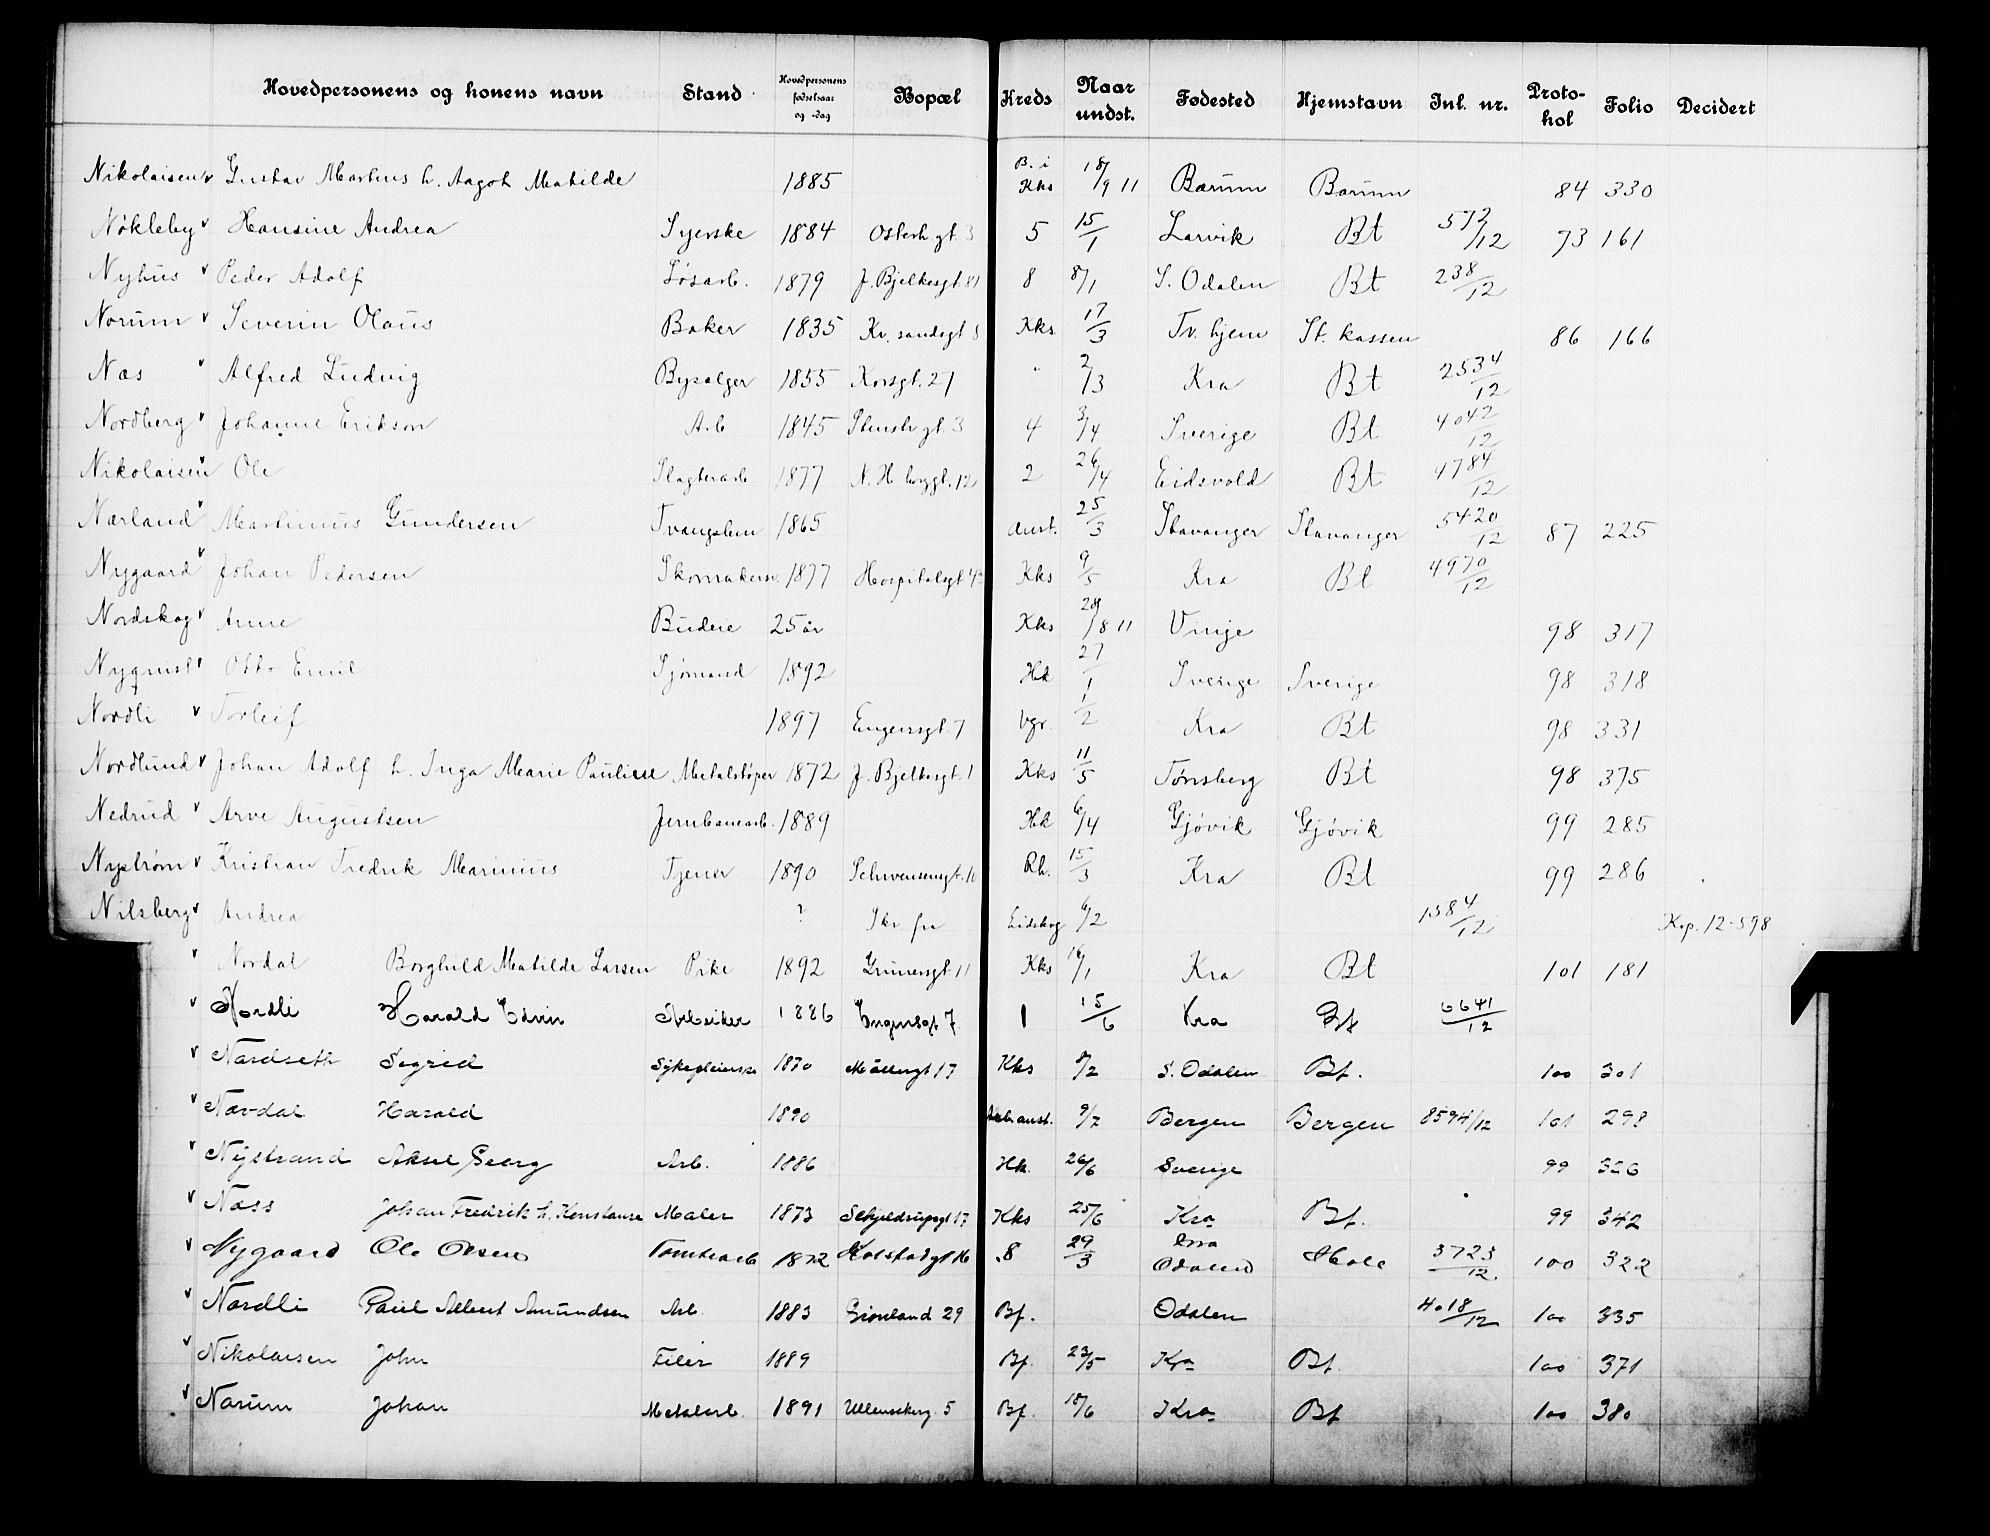 Hovedpersonens og konens navn Stand Hovedpersonens fødselsaar og -dag Bopæl Kreds Naar undst. Fødested Hjemstavn Inl. nr. Protokol Folio Decidert
Nikolaisen Gustav Martius h. Aagot Matilde 1885 B. i Kks 18/9 11 Bærum Bærum 84 330
Nökleby Hansine Andrea Syerske 1884 Osterh.gt. 3 5 15/1 Larvik Bt 572/12 73 161
Nyhus Peder Adolf Løsarb. 1879 J. Bjelkesgt. 81 8 8/1 S. Odalen Bt 238/12
Norum Severin Olaus Baker 1835 Kr. sandsgt 8 Kks 17/3 Tv. hjem St. kassen 86 166
Næs Alfred Ludvig Byselger 1855 Korsgt. 27 " 2/3 Kra Bt 2534/12
Nordberg Johanne Erikson Arb 1845 Stenstr gt. 3 4 3/4 Sverige Bt 4042/12
Nikolaisen Ole Slagterarb 1877 N. H. berggt. 12 2 26/4 Eidsvold Bt 4784/12
Nærland Martinius Gundersen Tvangslem 1865 Anst. 25/3 Stavanger Stavanger 5420/12 87 225
Nygaard Johan Pedersen Skomakersv. 1877 Hospitalsgt 4 Kks 9/5 Kra Bt 4970/12
Nordskog Anne Budeie 25 år Kks 28/8 11 Vinje 98 317
Nyqvist Otto Emil Sjömand 1892 Hk 27/1 Sverige Sverige 98 318
Nordli Torleif 1897 Engensgt. 7 Vgr. 1/2 Kra Bt 98 331
Nordlund Johan Adolf h. Inga Marie Pauline Metalstöper 1872 J. Bjelkesgt. 1 Kks 11/5 Tönsberg Bt 98 375
Nedrud Arve Augustsen Jernbanearb. 1889 Hk 6/4 Gjövik Gjövik 99 285
Nyström Kristian Fredrik Marinius Tjener 1890 Schwensensgt. 10 Rh. 15/3 Kra Bt 99 286
Nilsberg Andrea ? Skr. fra Eidskog 6/2 1384/12 Kop. 12-598
Nordal Borghild Matilde Larsen Pike 1892 Grünersgt 11 Kks 16/1 Kra Bt 101 181
Nordli Harald Edvin Arbeider 1886 Engensgt 7 1 15/6 Kra Bf 6641/12
Nordseth Sigrid Sykepleierske 1870 Möllergt 17 Kks 8/2 S. Odalen Bf. 100 301
Navdal Harald 1890 Arb anst. 9/7 Bergen Bergen 8594/12 101 298
Nystrand Aksel Georg Arb. 1886 Hk. 26/6 Sverige 99 326
Næss Johan Fredrik h. Konstanse Maler 1873 Schjeldrupsgt 17 Kks 25/6 Kra Bf. 99 342
Nygaard Ole Olsen Tomtearb 1872 Kolstadgt 16 8 29/3 Odalen Hole 3723/12 100 322
Nordli Paul Albert Amundsen Arb. 1883 Grönland 29 Bf. Odalen 4018/12 100 335
Nikolaisen John Filer 1889 Bf. 23/5 Kra Bf. 100 371
Norum Johan Metalarb. 1891 Ullensakerg. 5 Bf. 18/6 Kra Bf 100 380